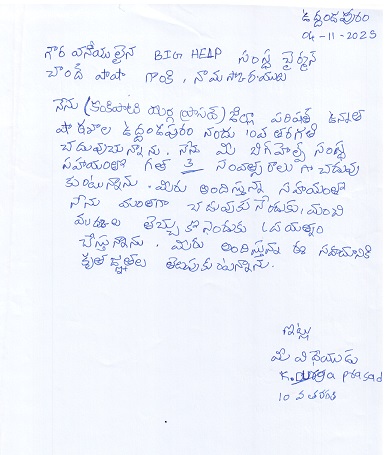 ఉద్దండపురం
04-11-2025
గౌరవనీయులైన BIG HELP సంస్థ చైర్మన్
చాంద్ పాషా గారికి, నామస్కారములు
నేను ( దుర్గా ప్రసాద్) జిల్లా పరిషత్ ఉన్నత
పాఠశాల ఉద్దండపురం నందు 10వ తరగతి
చదువుచున్నాను. నేను మీ బిగ్‌హెల్ప్ సంస్థ
సహాయంతో గత 3 సంవత్సరాలు గా చదువు
కుంటున్నాను. మీరు అందిస్తున్న సహాయంతో
నేను బాగా చదువుకునేందుకు, మంచి
మార్కులు తెచ్చు కొనేందుకు ప్రయత్నం
చేస్తున్నాను. మీరు అందిస్తున్న ఈ సహాయానికి
కృతజ్ఞతలు తెలుపుకుంటున్నాను.
ఇట్లు
మీ విధేయుడు
K. Durga prasad
10 వ తరగతి